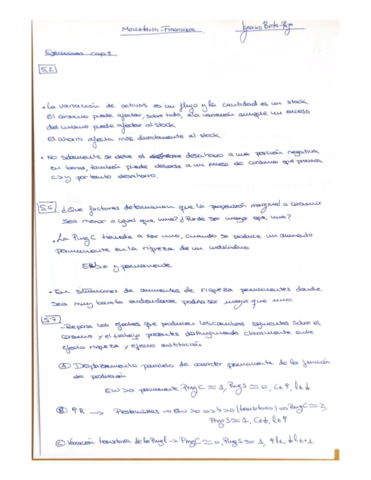 Monetaria-Financiera
Ejercicios cap. 5
5.2
• La variación de activos es un flujo y la cantidad es un stock.
El consumo puede afectar, sobre todo, a la variación aunque un exceso
del mismo puede afectar al stock.
El ahorro afecta más directamente al stock.
• No solamente se debe el desahorro a una posición negativa
en bonos, también puede deberse a un exceso de consumo que provoca
C>Y por tanto desahorro.
5.6 ¿Que factores determinan que la propensión marginal a consumir
sea menor o igual que uno? ¿Puede ser mayor que uno?
• La PmgC tiende a ser uno, cuando se produce un aumento
permanente en la riqueza de un individuo
EW>0 y permanente
• En situaciones de aumentos de riqueza permanentes donde
sea muy barato endeudarse podría ser mayor que uno
5.7
- Repasa los efectos que producen los cambios siguientes sobre el
consumo y el trabajo presentes distinguiendo claramente entre
efecto riqueza y efecto sustitución
A Desplazamiento paralelo de carácter permanente de la función
de producción
EW>0 permanente PmgC≃1, PmgS≃0, C↑, l↓
B ↑R → Prestamistas → EW>0
PmgS≃1, C↓, l↑
C Variación transitoria de la Pmgl → PmgC≃0, PmgS≃1,